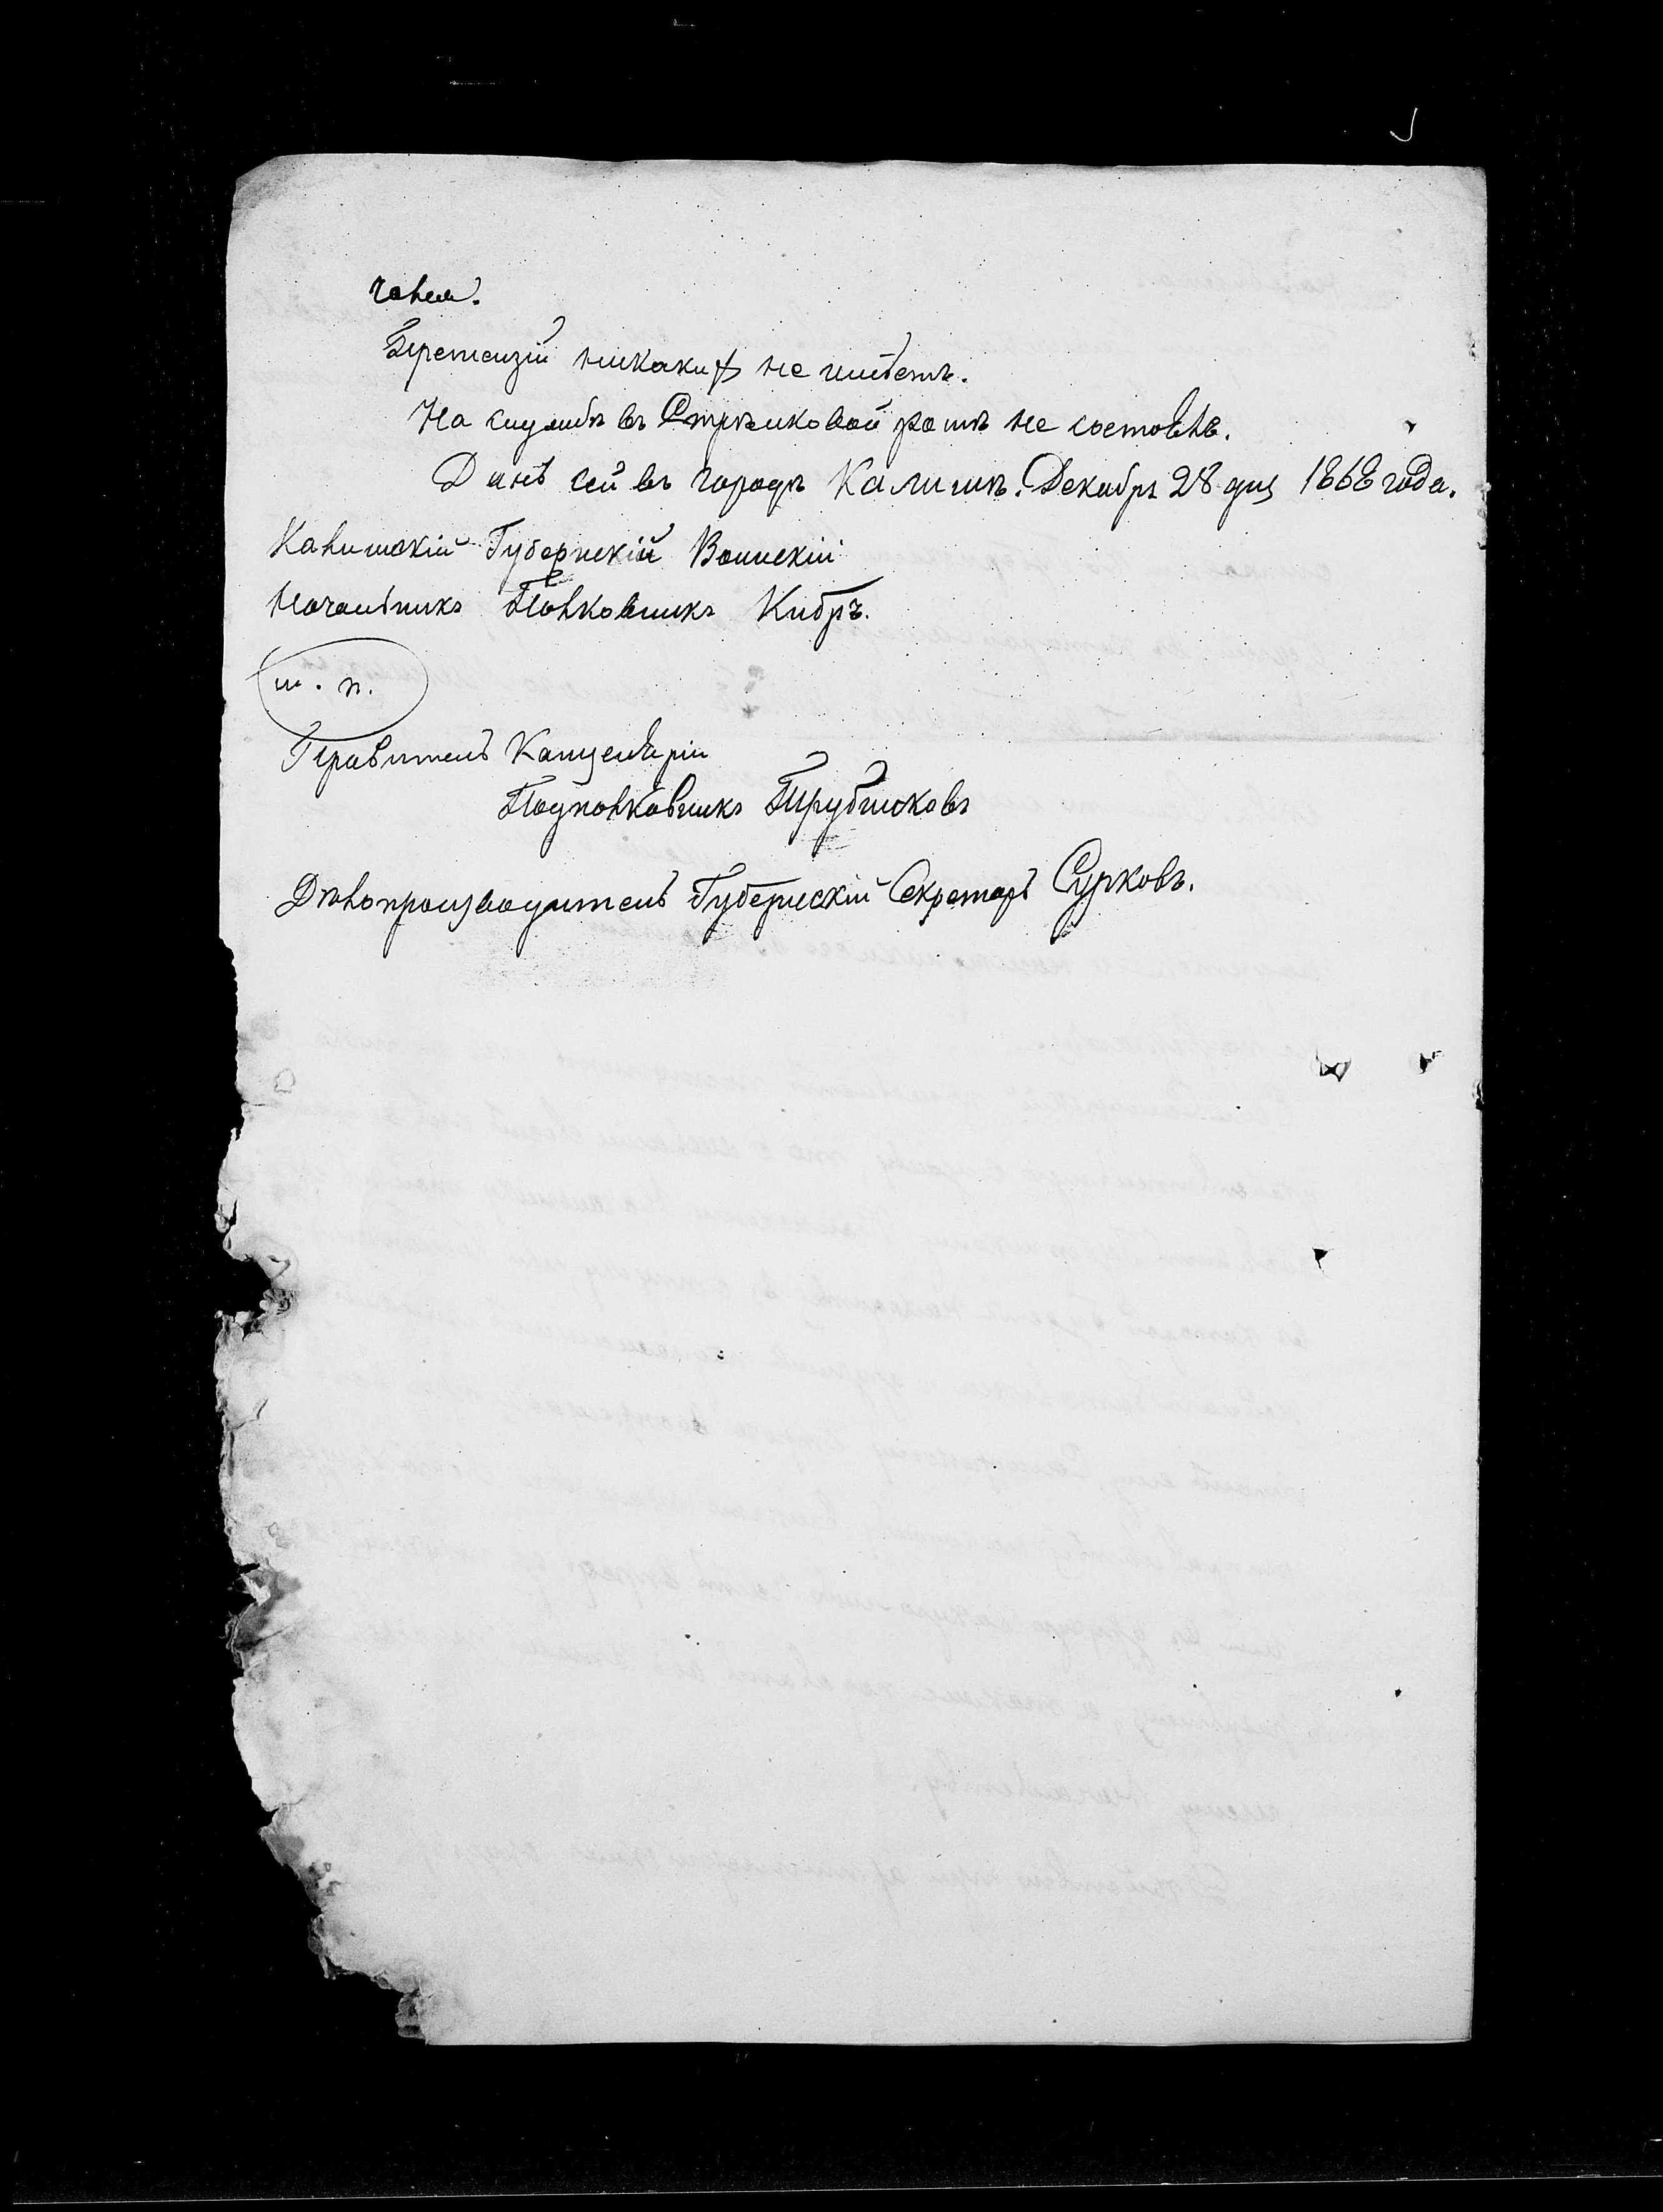 чалъ.
Претензій никакихъ не имѣетъ.
На службѣ въ Стрѣлковой ротѣ не состоялъ.
Данъ сей въ городѣ Калишѣ. Декабря 28 дня 1868 года.
Калишскій Губернскій Воинскій
Начальникъ Полковникъ
м. п.
Правитель Канцеляріи
Подполковникъ Трубниковъ
Дѣлопроизводитель Губернскій Секретарь Сурковъ.